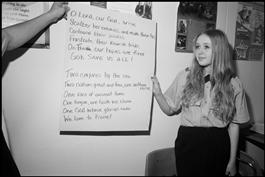 O Lord, our God, arise
Scatter her enemies, and make them fall
Confound their politics
Frustrate their knavish tricks
On Thee our hopes we fix
GOD SAVE US ALL!
Two empires by the sea
Two nations great and free,
One race of ancient fame
One tongue, one faith we claim
One God whose glorious name
We love to